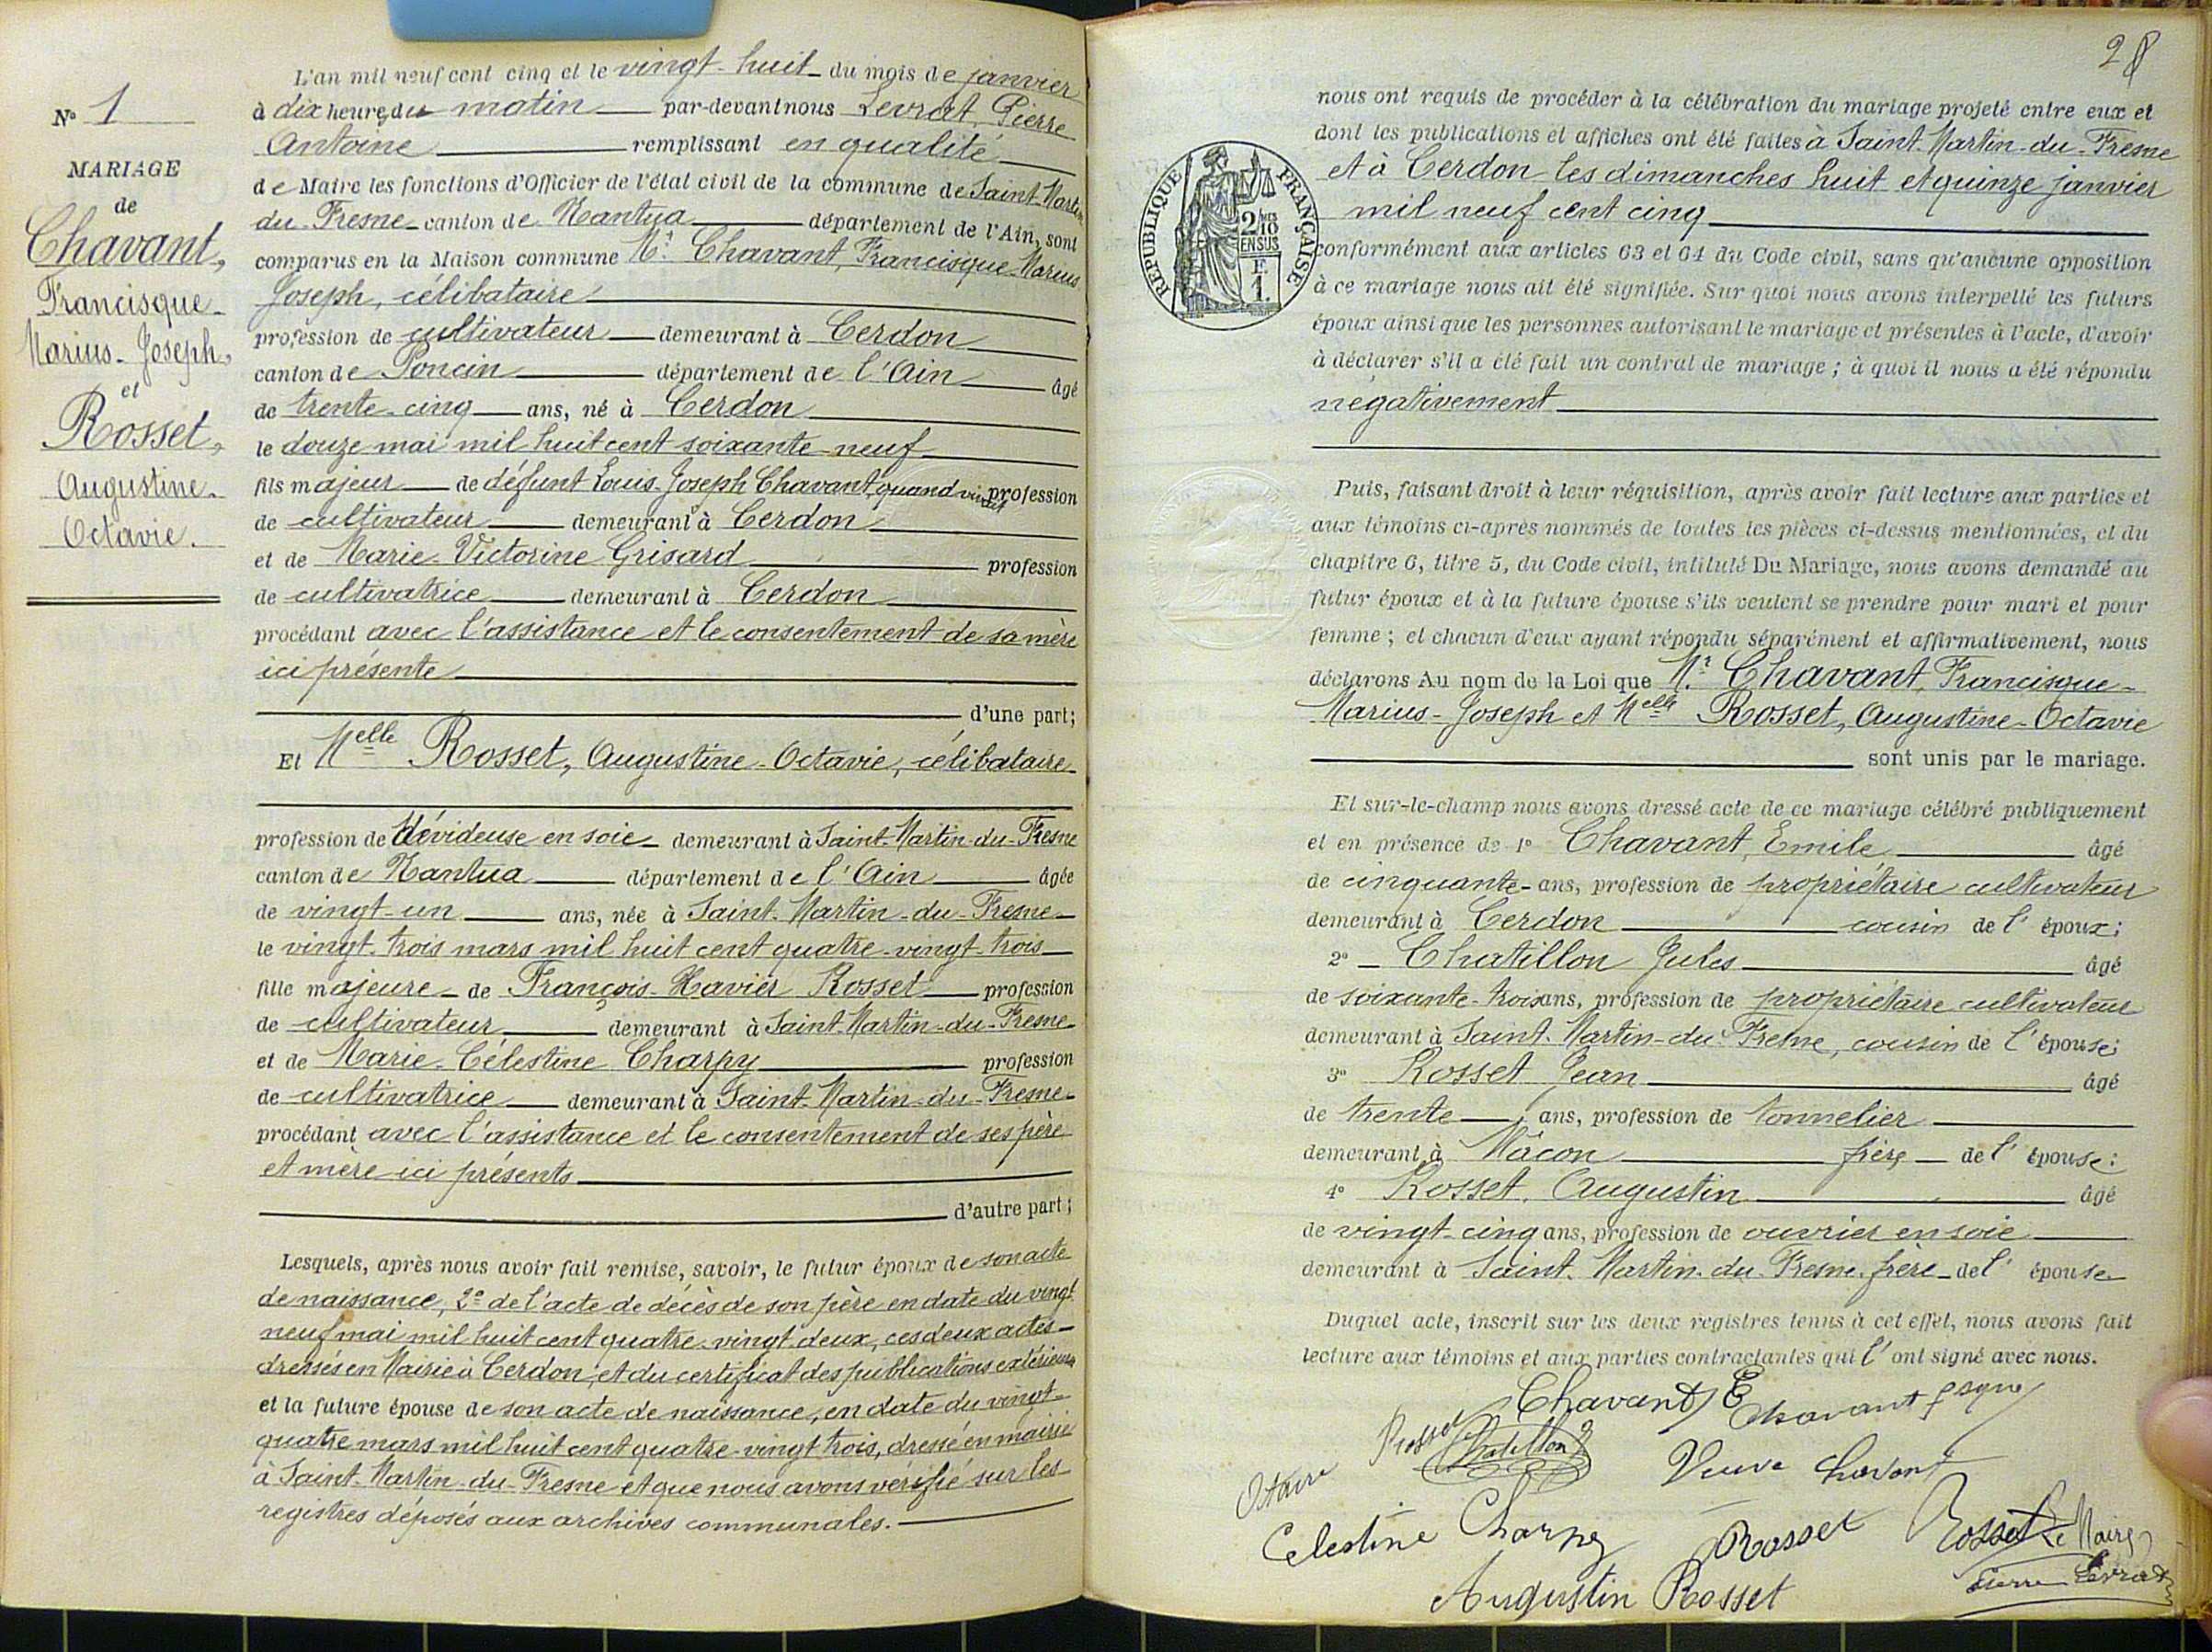 N° 1
MARIAGE
de
Chavant,
Francisque-
Marius-Joseph,
et
Rosset,
Augustine-
Octavie.
L'an mil neuf cent cinq et le vingt-huit du mois de janvier
à dix heures du matin par-devant nous Levrat, Pierre
Antoine remplissant en qualité
de Maire les fonctions d'Officier de l'état civil de la commune de Saint-Martin
du-Fresne canton de Nantua département de l'Ain, sont
comparus en la Maison commune Mr. Chavant, Francisque-Marius
Joseph, célibataire
profession de cultivateur demeurant à Cerdon
canton de Poncin département de l'Ain âgé
de trente-cinq ans, né à Cerdon
le douze mai mil huit cent soixante-neuf
fils majeur de défunt Louis-Joseph Chavant, quand vivait profession
de cultivateur demeurant à Cerdon
et de Marie-Victorine Grisard profession
de cultivatrice demeurant à Cerdon
procédant avec l'assistance et le consentement de sa mère
ici présente
d'une part;
Et Melle Rosset, Augustine-Octavie, célibataire
profession de dévideuse en soie demeurant à Saint-Martin-du-Fresne
canton de Nantua département de l'Ain âgée
de vingt-un ans, née à Saint-Martin-du-Fresne
le vingt-trois mars mil huit cent quatre-vingt-trois
fille majeure de François-Xavier Rosset profession
de cultivateur demeurant à Saint-Martin-du-Fresne
et de Marie-Célestine Charpy profession
de cultivatrice demeurant à Saint-Martin-du-Fresne
procédant avec l'assistance et le consentement de ses père
et mère ici présents
d'autre part;
Lesquels, après nous avoir fait remise, savoir, le futur époux de son acte
de naissance, 2° de l'acte de décès de son père en date du vingt
neuf mai mil huit cent quatre-vingt-deux, ces deux actes
dressés en Mairie à Cerdon, et du certificat des publications extérieures
et la future épouse de son acte de naissance, en date du vingt-
quatre mars mil huit cent quatre-vingt trois, dressé en mairie
à Saint-Martin-du-Fresne et que nous avons vérifié sur les
registres déposés aux archives communales.
28
nous ont requis de procéder à la célébration du mariage projeté entre eux et
dont les publications et affiches ont été faites à Saint-Martin-du-Fresne
et à Cerdon les dimanches huit et quinze janvier
mil neuf cent cinq
conformément aux articles 63 et 64 du Code civil, sans qu'aucune opposition
à ce mariage nous ait été signifiée. Sur quoi nous avons interpellé les futurs
époux ainsi que les personnes autorisant le mariage et présentes à l'acte, d'avoir
à déclarer s'il a été fait un contrat de mariage; à quoi il nous a été répondu
négativement
RÉPUBLIQUE FRANÇAISE
2/10
EN SUS
F
1.
Puis, faisant droit à leur réquisition, après avoir fait lecture aux parties et
aux témoins ci-après nommés de toutes les pièces ci-dessus mentionnées, et du
chapitre 6, titre 5, du Code civil, intitulé Du Mariage, nous avons demandé au
futur époux et à la future épouse s'ils veulent se prendre pour mari et pour
femme; et chacun d'eux ayant répondu séparément et affirmativement, nous
déclarons Au nom de la Loi que Mr. Chavant, Francisque-
Marius-Joseph et Melle Rosset, Augustine-Octavie
sont unis par le mariage.
Et sur-le-champ nous avons dressé acte de ce mariage célébré publiquement
et en présence de 1° Chavant, Emile âgé
de cinquante ans, profession de propriétaire cultivateur
demeurant à Cerdon cousin de l' époux;
2° Chatillon Jules âgé
de soixante-trois ans, profession de propriétaire cultivateur
demeurant à Saint-Martin-du-Fresne, cousin de l'épouse;
3° Rosset Jean âgé
de trente ans, profession de tonnelier
demeurant à Mâcon frère de l' épouse;
4° Rosset, Augustin âgé
de vingt-cinq ans, profession de ouvrier en soie
demeurant à Saint-Martin-du-Fresne, frère de l' épouse
Duquel acte, inscrit sur les deux registres tenus à cet effet, nous avons fait
lecture aux témoins et aux parties contractantes qui l' ont signé avec nous.
Chavant E Chavant fsque
Octavie Rosset Chatillon J Veuve Chavant
Celestine Charpy Rosset Rosset Le Maire
Augustin Rosset Pierre Levrat